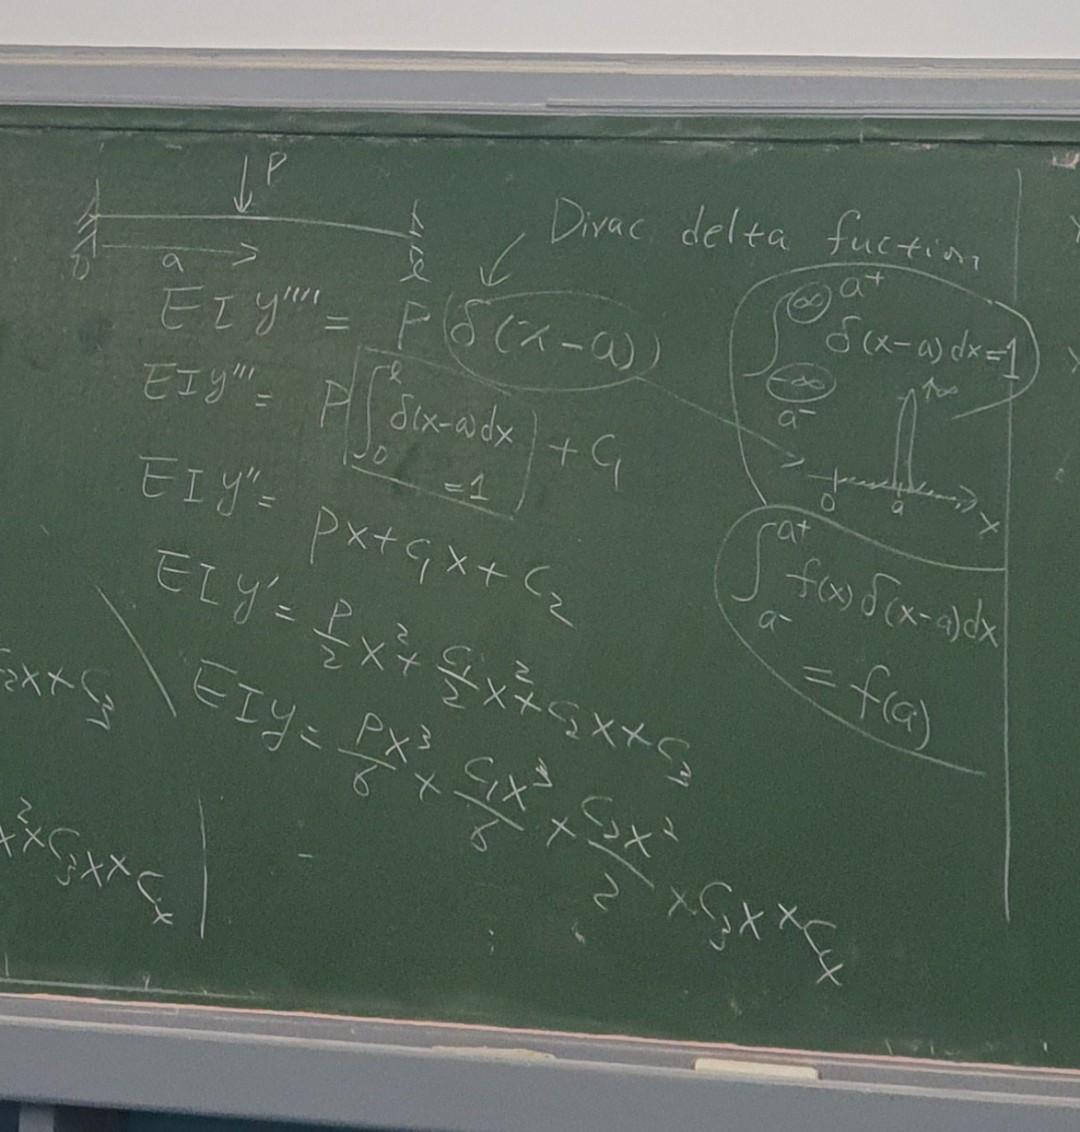 P
Dirac delta fuction
0 a l
EIy'''' = P(δ(x-a))
EIy''' = P[∫₀ˡ δ(x-a)dx =1] + C₁
EIy'' = Px+C₁x+C₂
EIy' = P/2 x²+ C₁/2 x²+C₂x+C₃
EIy = Px³/6 + C₁x³/6 + C₂x²/2 + C₃x+C₄
∞ a+
∫ δ(x-a)dx=1
-∞ a-
↑∞
0 a x
∫ₐ₋ᵃ⁺ f(x)δ(x-a)dx
= f(a)
₂x+C₃
x²+C₃x+C₄